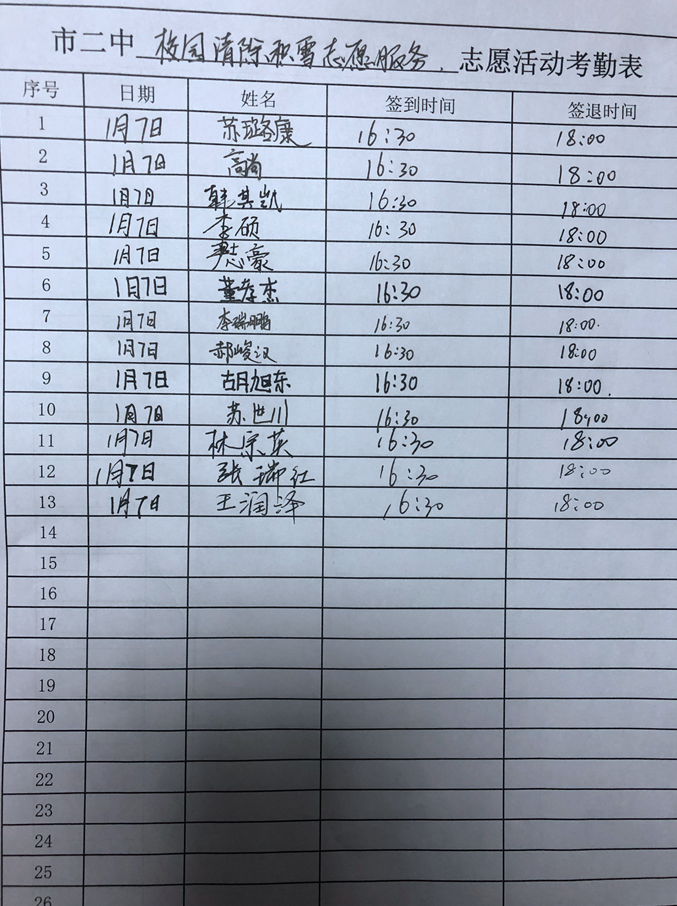 市二中 校园清除积雪志愿服务. 志愿活动考勤表
序号 日期 姓名 签到时间 签退时间
1 1月7日 苏璐康 16:30 18:00
2 1月7日 高尚 16:30 18:00
3 1月7日 韩其凯 16:30 18:00
4 1月7日 李硕 16:30 18:00
5 1月7日 豪 16:30 18:00
6 1月7日 董孝杰 16:30 18:00
7 1月7日 李瑞鹏 16:30 18:00.
8 1月7日 郝峻汉 16:30 18:00
9 1月7日 胡旭东 16:30 18:00.
10 1月7日 苏世川 16:30 18:00
11 1月7日 林宗英 16:30 18:00
12 1月7日 张瑞红 16:30 18:00
13 1月7日 王润泽 16:30 18:00
14
15
16
17
18
19
20
21
22
23
24
25
26